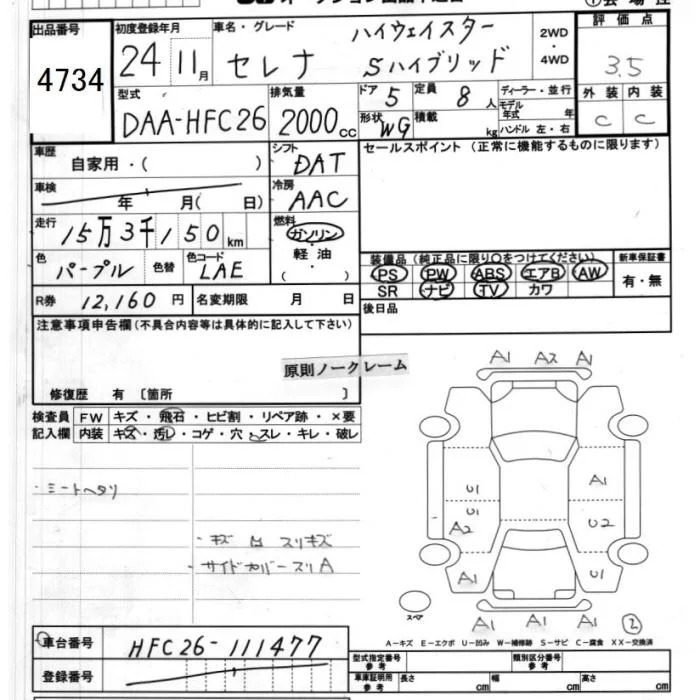 出品番号 4734
初度登録年月 24 11月
車名・グレード セレナ ハイウェイスター Sハイブリッド
2WD・4WD
評価点 3.5
外装 内装
C C
型式 DAA-HFC26
排気量 2000cc
ドア 5 定員 8人
形状 WG 積載 kg
ディーラー・並行
モデル年式 年
ハンドル 左・右
車歴 自家用・( )
シフト DAT
セールスポイント(正常に機能するものに限ります)
車検 年 月( 日)
冷房 AAC
走行 15万3千150km
燃料 ガソリン・軽油 ( )
色 パープル 色替 色コード LAE
装備品(純正品に限り○をつけてください)
PS PW ABS エアB AW
SR ナビ TV カワ
新車保証書 有・無
R券 12,160円 名変期限 月 日
後日品
注意事項申告欄(不具合内容等は具体的に記入して下さい)
原則ノークレーム
修復歴 有〔箇所 〕
検査員記入欄
FW キズ・飛石・ヒビ割・リペア跡・×要
内装 キズ・汚レ・コゲ・穴・スレ・キレ・破レ
・ミートヘタリ
・キズ 凹 スリキズ
・サイドカバースリA
A1 A2 A1
U1 A1
U1
A2 U2
A1 U1
A1 A1 A1
スペア
②
A-キズ E-エクボ U-凹み W-補修跡 S-サビ C-腐食 XX-交換済
車台番号 HFC26-111477
登録番号
型式指定番号 参考 類別区分番号 参考
車庫証明用 参考 長さ cm 幅 cm 高さ cm